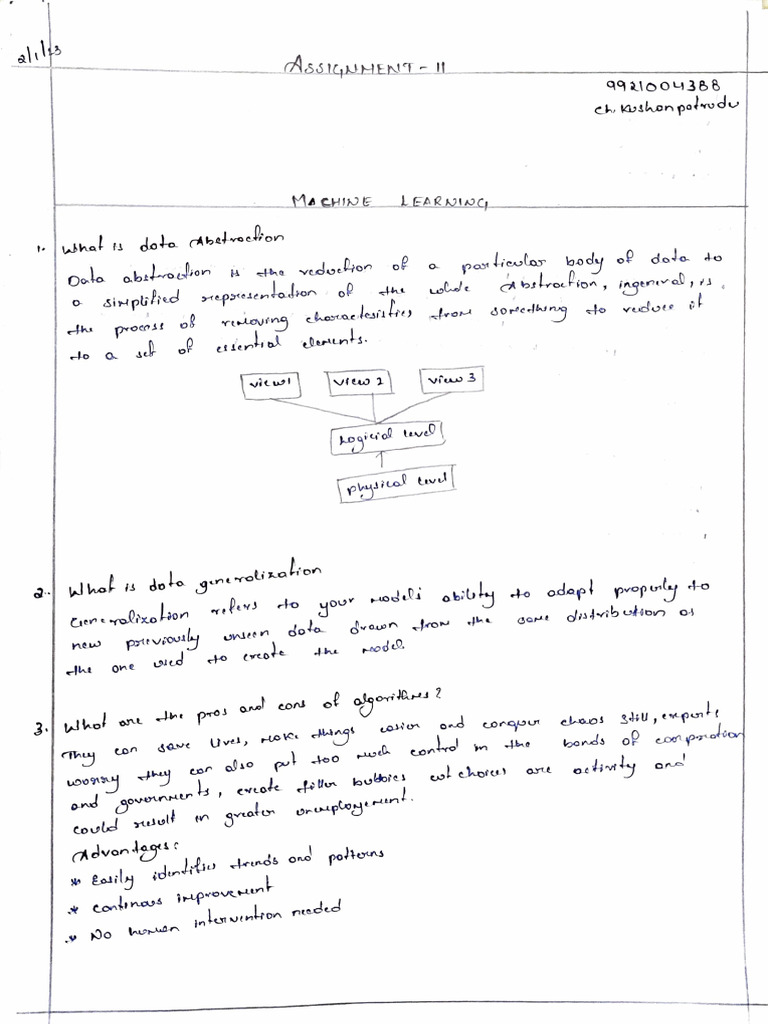 2/1/23
ASSIGNMENT - II
9921004388
Ch. Kushanpatrudu
MACHINE LEARNING
1. What is data Abstraction
Data abstraction is the reduction of a particular body of data to
a simplified representation of the whole Abstraction, ingeneral, is
the process of removing characteristics from something to reduce it
to a set of essential elements.
view1 view 2 view 3
Logicial level
physical level
2. What is data generalization
Generalization refers to your model's ability to adapt properly to
new previously unseen data drawn from the same distribution as
the one used to create the model.
3. What are the pros and cons of algorithms?
They can save lives, make things easier and conquer chaos still, experts
worry they can also put too much control in the bands of corporation
and governments, create filter bubbies cut choices are activity and
could result in greater unemployement.
Advantages:
* Easily identifies trends and patterns
* Continous improvement
* No human intervention needed